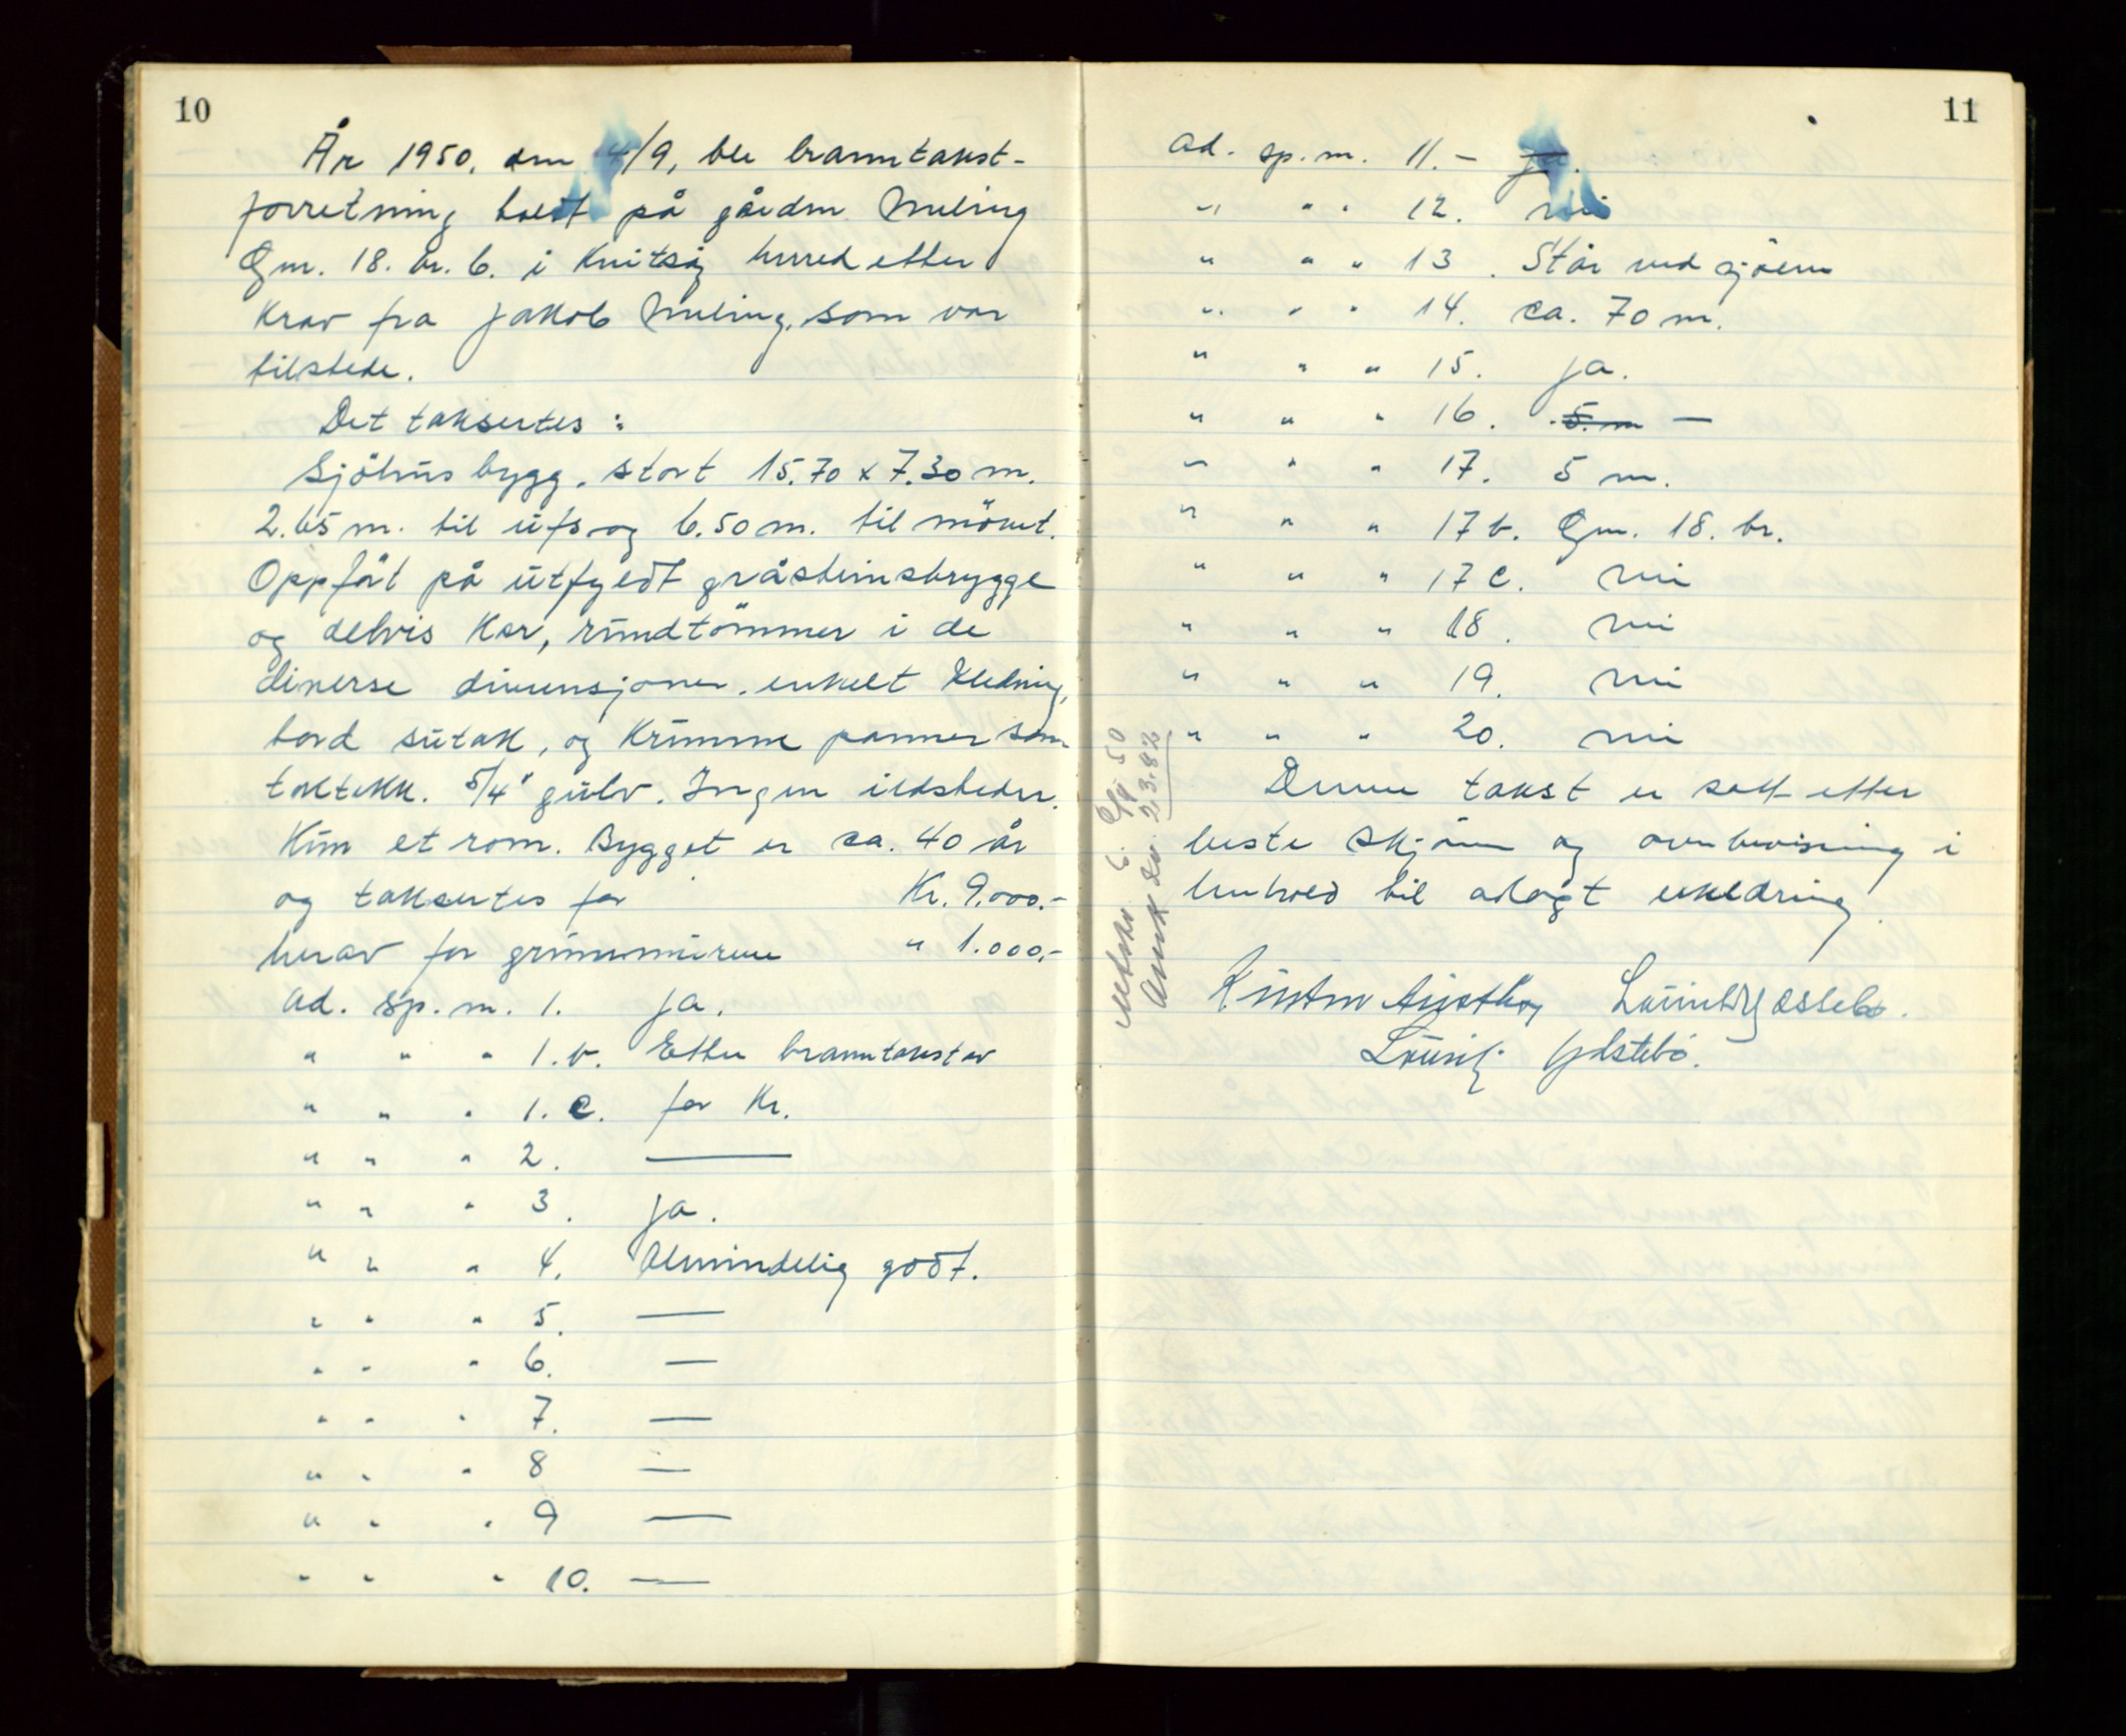 10
År 1950, den 4/9, ble branntakst-
forretning holdt på gården Meling
Gnr. 18. br. 6. i Kvitsøy herred etter
krav fra Jakob Meling, som var
tilstede.
Det taksertes:
Sjöhus bygg. stort 15.70 x 7.30 m.
2.65 m. til ufs og 6.50 m. til mönet.
Oppfört på utfyldt gråsteinsbrygge
og delvis kar, rundtömmer i de
diverse dimensjoner. enkelt kledning,
bord sutak, og krumme panner som
taktekk. 5/4" gulv. Ingen ildsteder.
Kun et rom. Bygget er ca. 40 år
og taksertes for Kr. 9.000.-
herav for grunnmurene " 1.000.-
ad. sp.m. 1. ja.
" " " 1.b. Etter branntakst av
" " " 1.c. for Kr.
" " " 2. —
" " " 3. ja.
" " " 4. Almindelig godt.
" " " 5. —
" " " 6. —
" " " 7. —
" " " 8 —
" " " 9 —
" " " 10. —
11
ad. sp.m. 11.- ja.
" " " 12. nei
" " " 13. Står ved sjöen
" " " 14. ca. 70 m.
" " " 15. ja.
" " " 16. 5 m —
" " " 17. 5 m.
" " " 17b. Gnr. 18. br.
" " " 17c. nei
" " " 18. nei
" " " 19. nei
" " " 20. nei
Denne takst er satt etter
beste skjönn og overbevisning i
henhold til avlagt erkledring
50
2.3.82